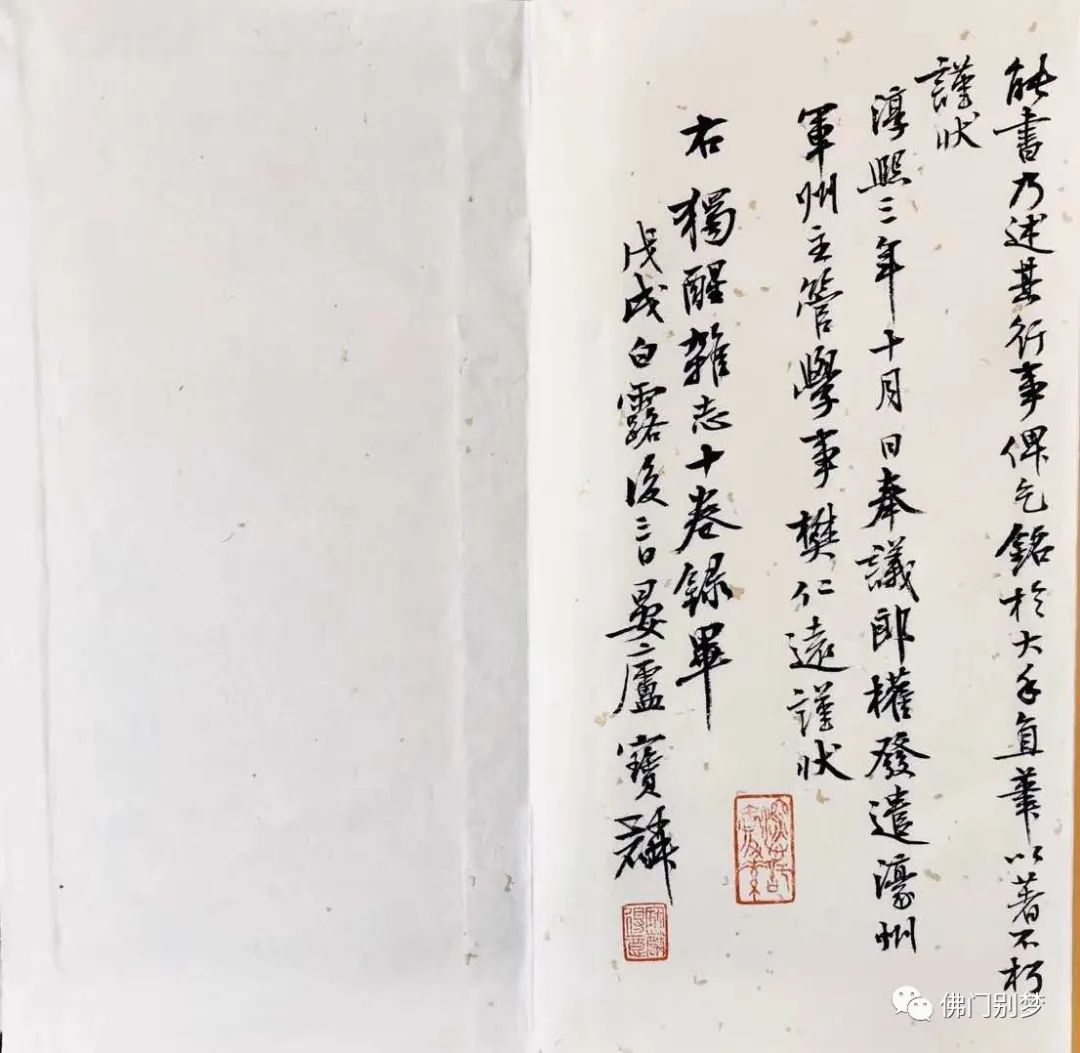 能書乃述其行事俾乞銘於大手直筆以著不朽
謹狀
淳熙三年十月日奉議郎權發遣濠州
軍州主管學事樊仁遠謹狀
右獨醒雜志十卷錄畢
戊戌白露後三日晏廬寶麟
佛门别梦